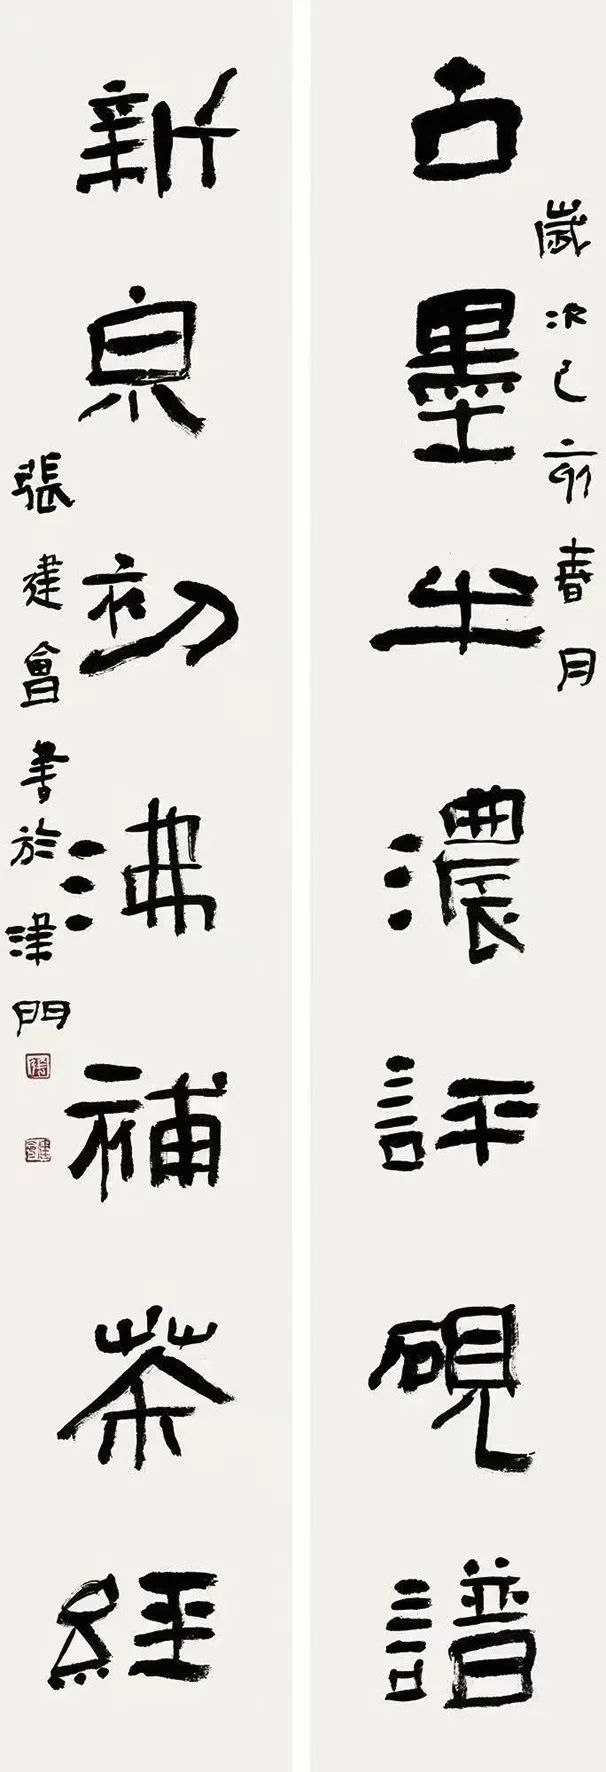 古墨半濃評硯譜
歲次己亥春月
新泉初沸補茶經
張建會書於津門